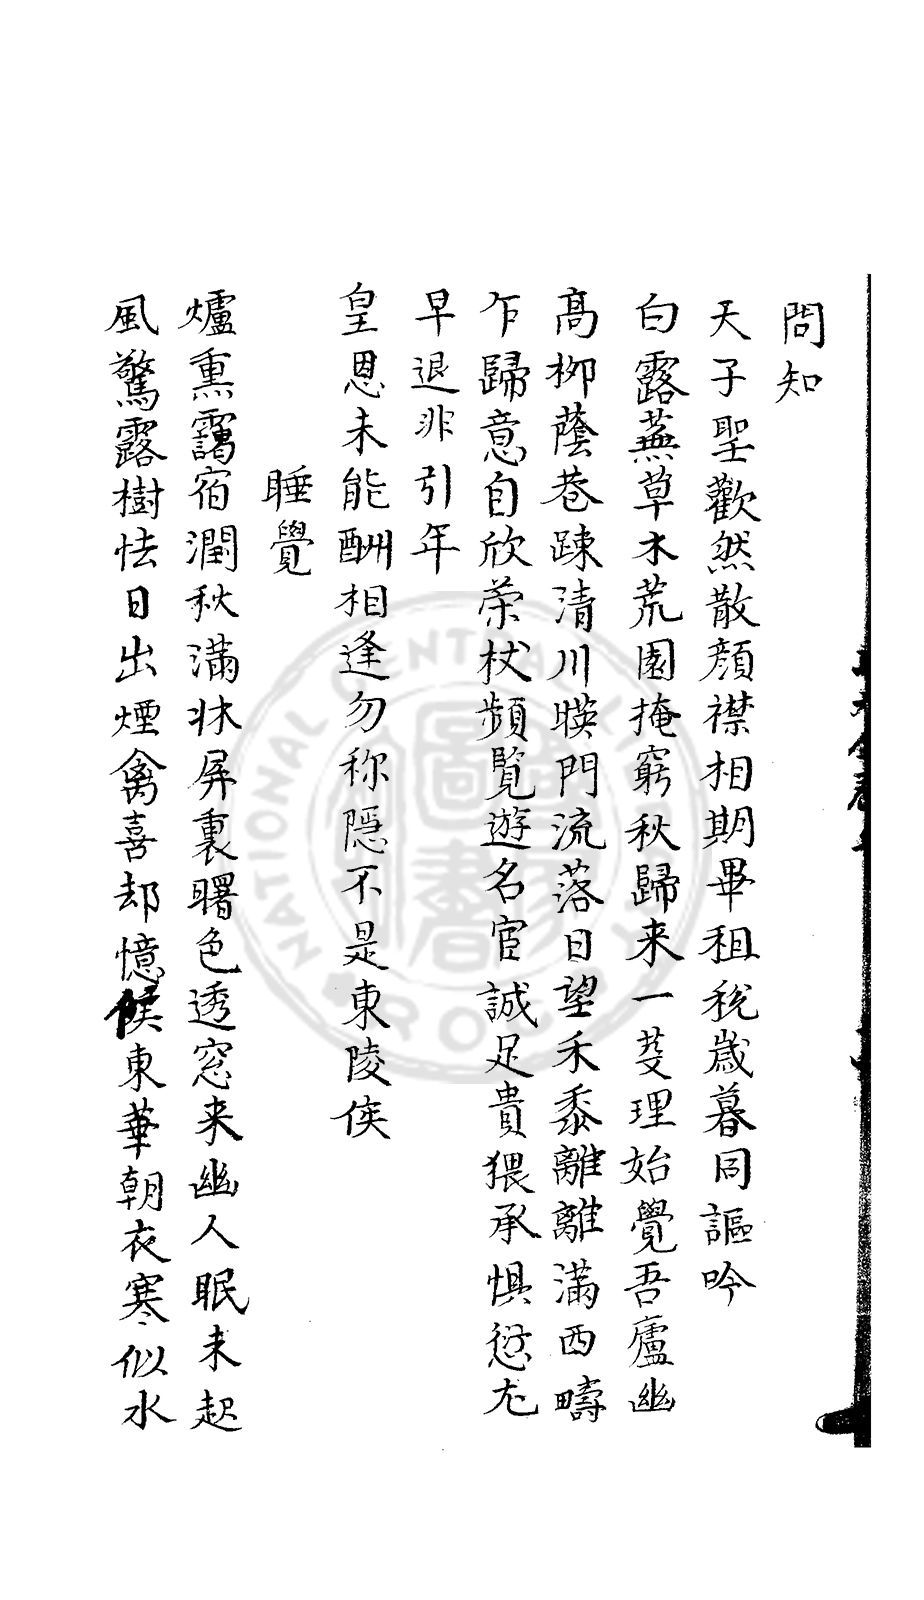 問知
天子聖歡然散顔襟相期畢租稅歲暮同謳吟
白露蕪草木荒園掩窮秋歸来一芟理始覺吾廬幽
高柳蔭巷踈清川暎門流落日望禾黍離離滿西疇
乍歸意自欣荣杖頻覽遊名宦誠足貴猥承懼愆尤
早退非引年
皇恩未能酬相逢勿称隠不是東陵侯
睡覺
爐熏靄宿潤秋滿牀屏裏曙色透窓来幽人眠未起
風驚露樹怯日出煙禽喜却憶候東華朝衣寒似水
NATIONAL CENTRAL LIBRARY